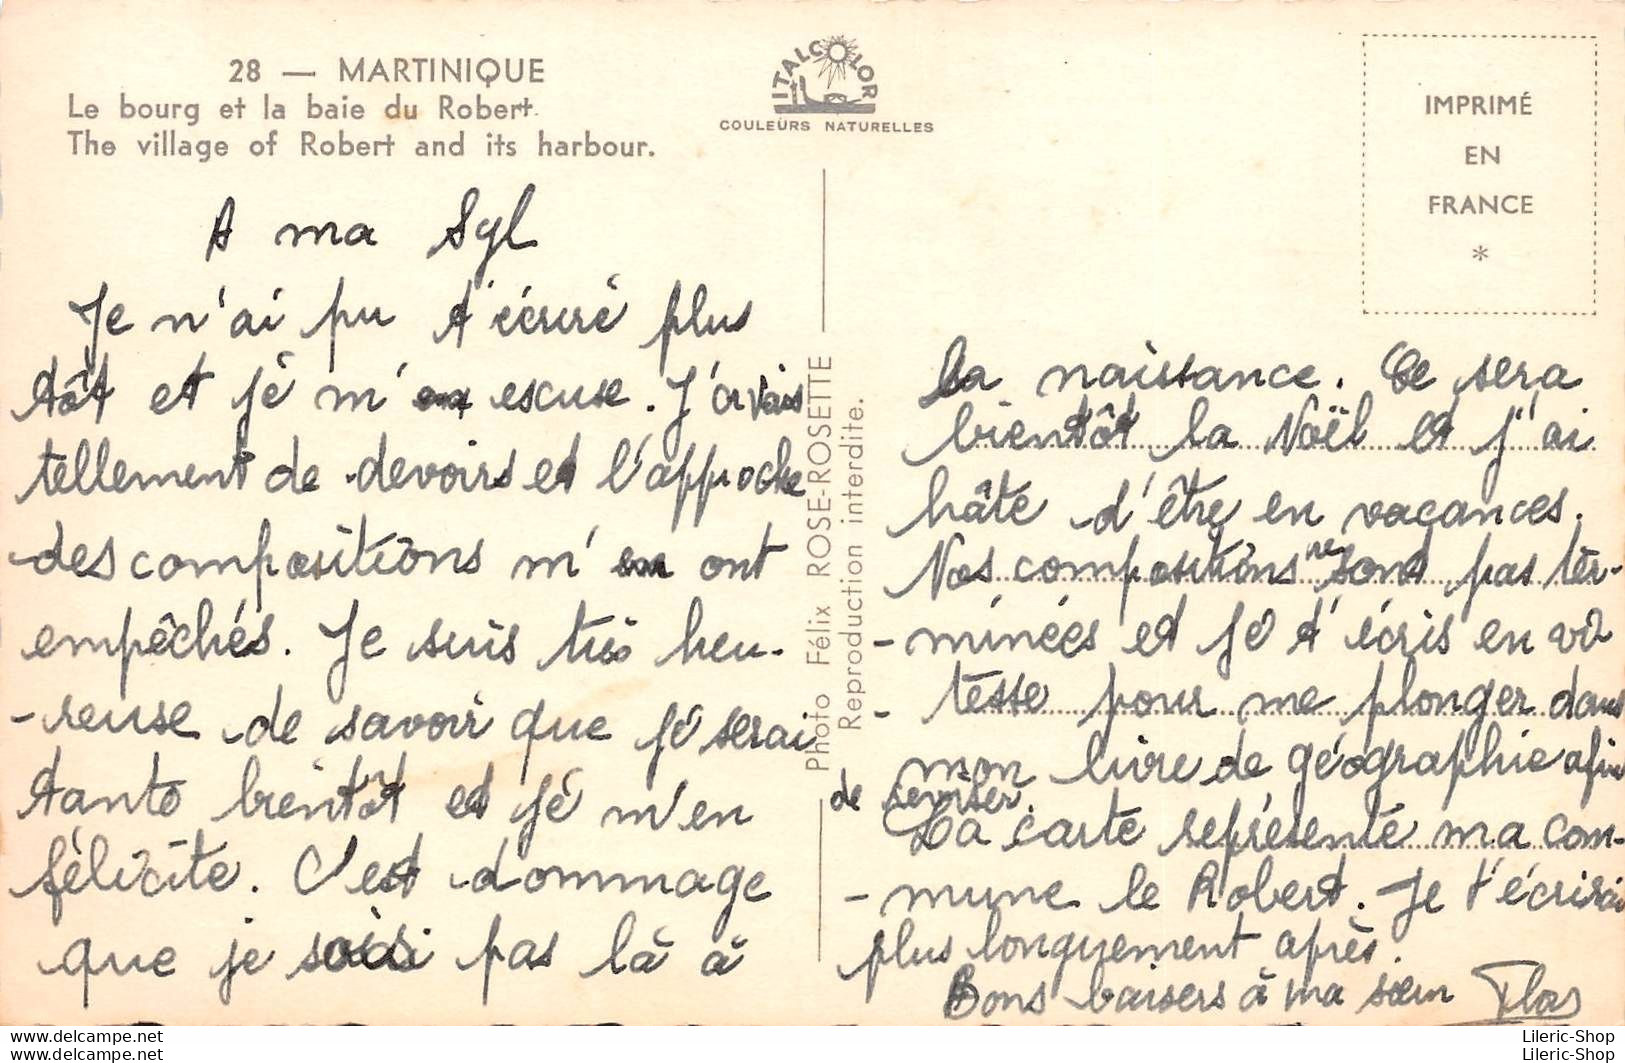 28 — MARTINIQUE
Le bourg et la baie du Robert.
The village of Robert and its harbour.
ITALCOLOR
COULEURS NATURELLES
IMPRIMÉ
EN
FRANCE
*
Photo Félix ROSE-ROSETTE
Reproduction interdite.
A ma Syl
Je n'ai pu t'écrire plus
tôt et je m'en escuse. J'avais
tellement de devoirs et l'approche
des compositions m'en ont
empêchés. Je suis très heu-
-reuse de savoir que je serai
tante bientôt et je m'en
félicite. C'est dommage
que je sois pas là à
la naissance. Ce sera
bientôt la Noël et j'ai
hâte d'être en vacances.
Nos compositions ne sont pas ter-
-minées et je t'écris en vi
-tesse pour me plonger dans
mon livre de géographie afin
de reviser.
La carte représente ma com-
-mune le Robert. Je t'écrirai
plus longuement après.
Bons baisers à ma sœur Flor
Lileric-Shop
Lileric-Shop
Lileric-Shop
Lileric-Shop